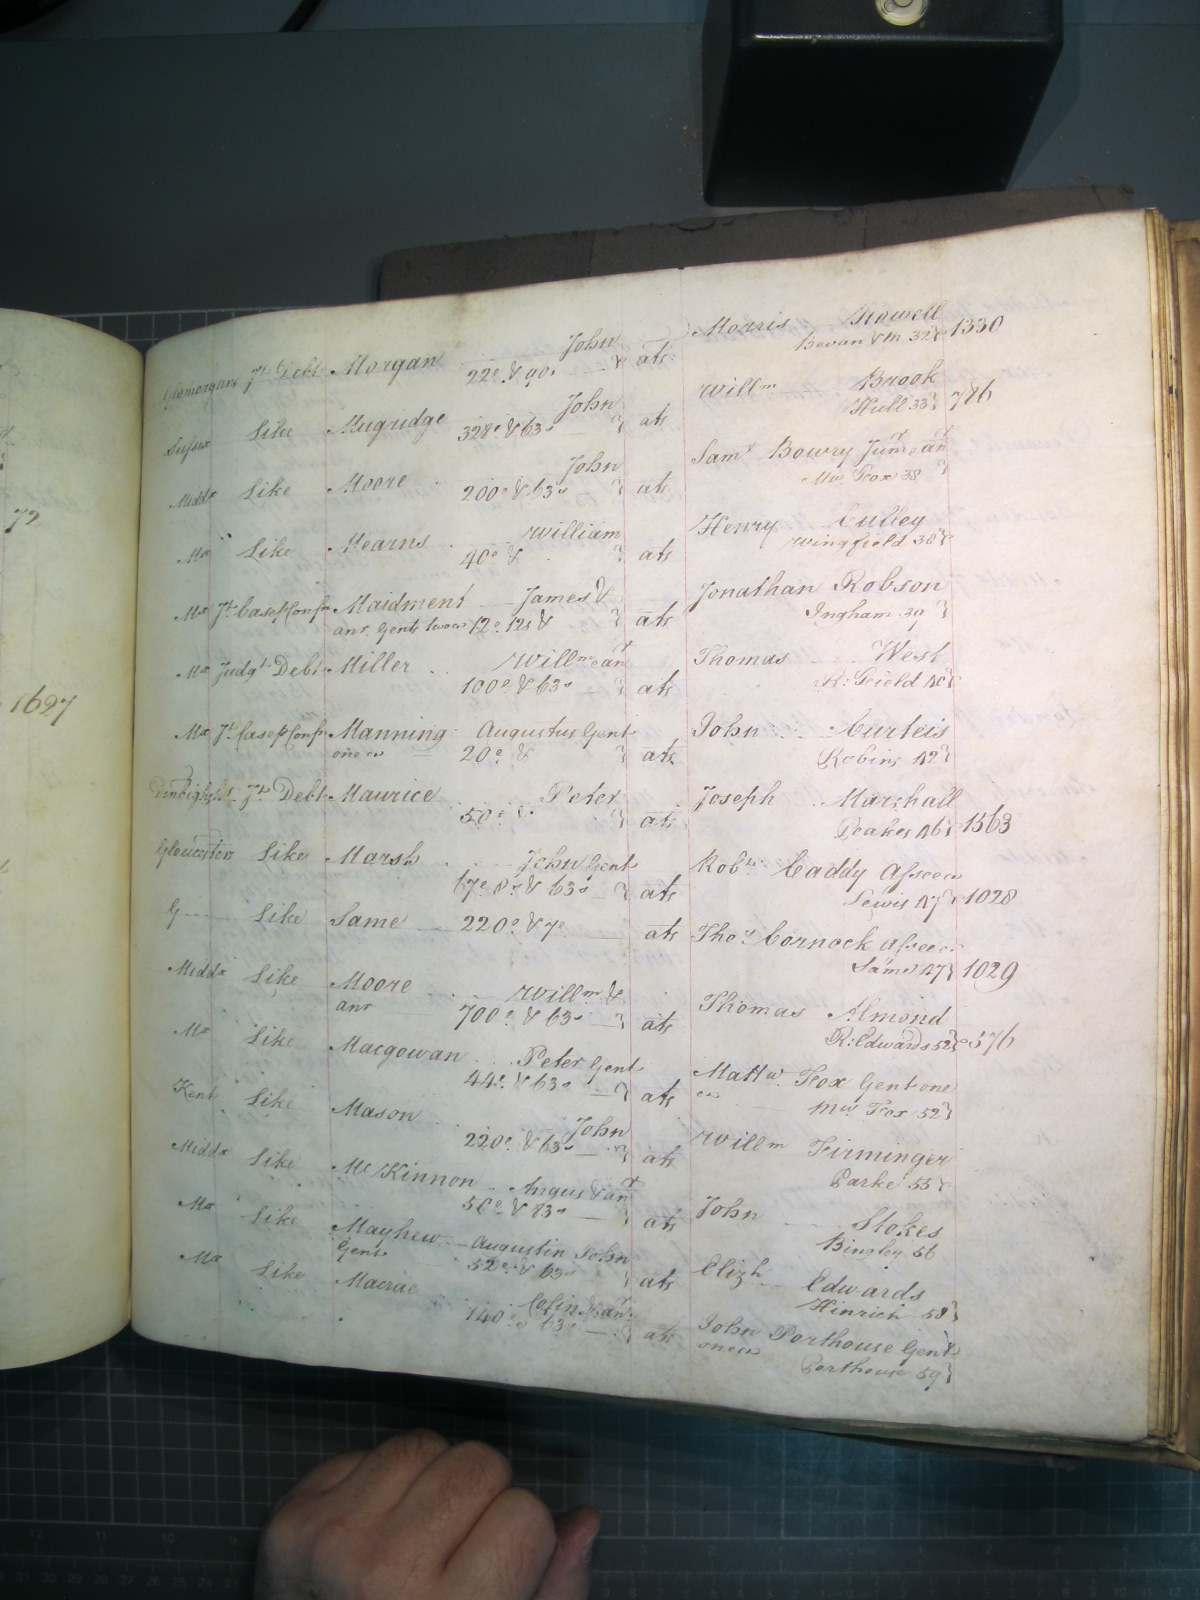 72
1627
Glamorgans Jt. Debt Morgan John ats Morris Howell
22£ & 90s Bevan & M 32 1330
Sussex Like Mugridge John ats Willm Brook
328£ & 63s Hull 33 786
Middx Like Moore John ats Saml Bowry Junr & anr
200£ & 63s Mw Fox 38
Mx Like Mearns William ats Henry Culley
40£ & Wingfield 38
Mx Jt. Case p Confn Maidment James & ats Jonathan Robson
anr. Gents two &c 12£ 12s & Ingham 39
Mx Judgt Debt Miller Willm & an ats Thomas West
100£ & 63s R: Field 40
Mx Jt. Case p Confn Manning Augustus Gent ats John Curteis
one &c 20£ & Robins 42
Denbighsh Jt. Debt Maurice Peter ats Joseph Marshall
50£ & Peakes 46 1563
Gloucester Like Marsh John Gent ats Robt. Caddy Assee &c
67£ 8s & 63s Lewis 47 1028
G Like Same 220£ & 7£ ats Thos. Cornock Assee &c
Same 47 1029
Middx Like Moore Willm & ats Thomas Almond
anr 700£ & 63s R: Edwards 52 576
Mx Like Macgowan Peter Gent ats Mattw. Fox Gent one
44£ & 63s &c Mw Fox 52
Kent Like Mason John ats Willm Firminger
220£ & 63s Parke 55
Middx Like McKinnon Angus & an ats John Stokes
50£ & 83s Binsley 56
Mx Like Mayhew Augustin John ats Elizh Edwards
Gent 52£ & 63s Hinrich 58
Mx Like Macrae Colin & an ats John Porthouse Gent
140£ & 63s one &c Porthouse 59